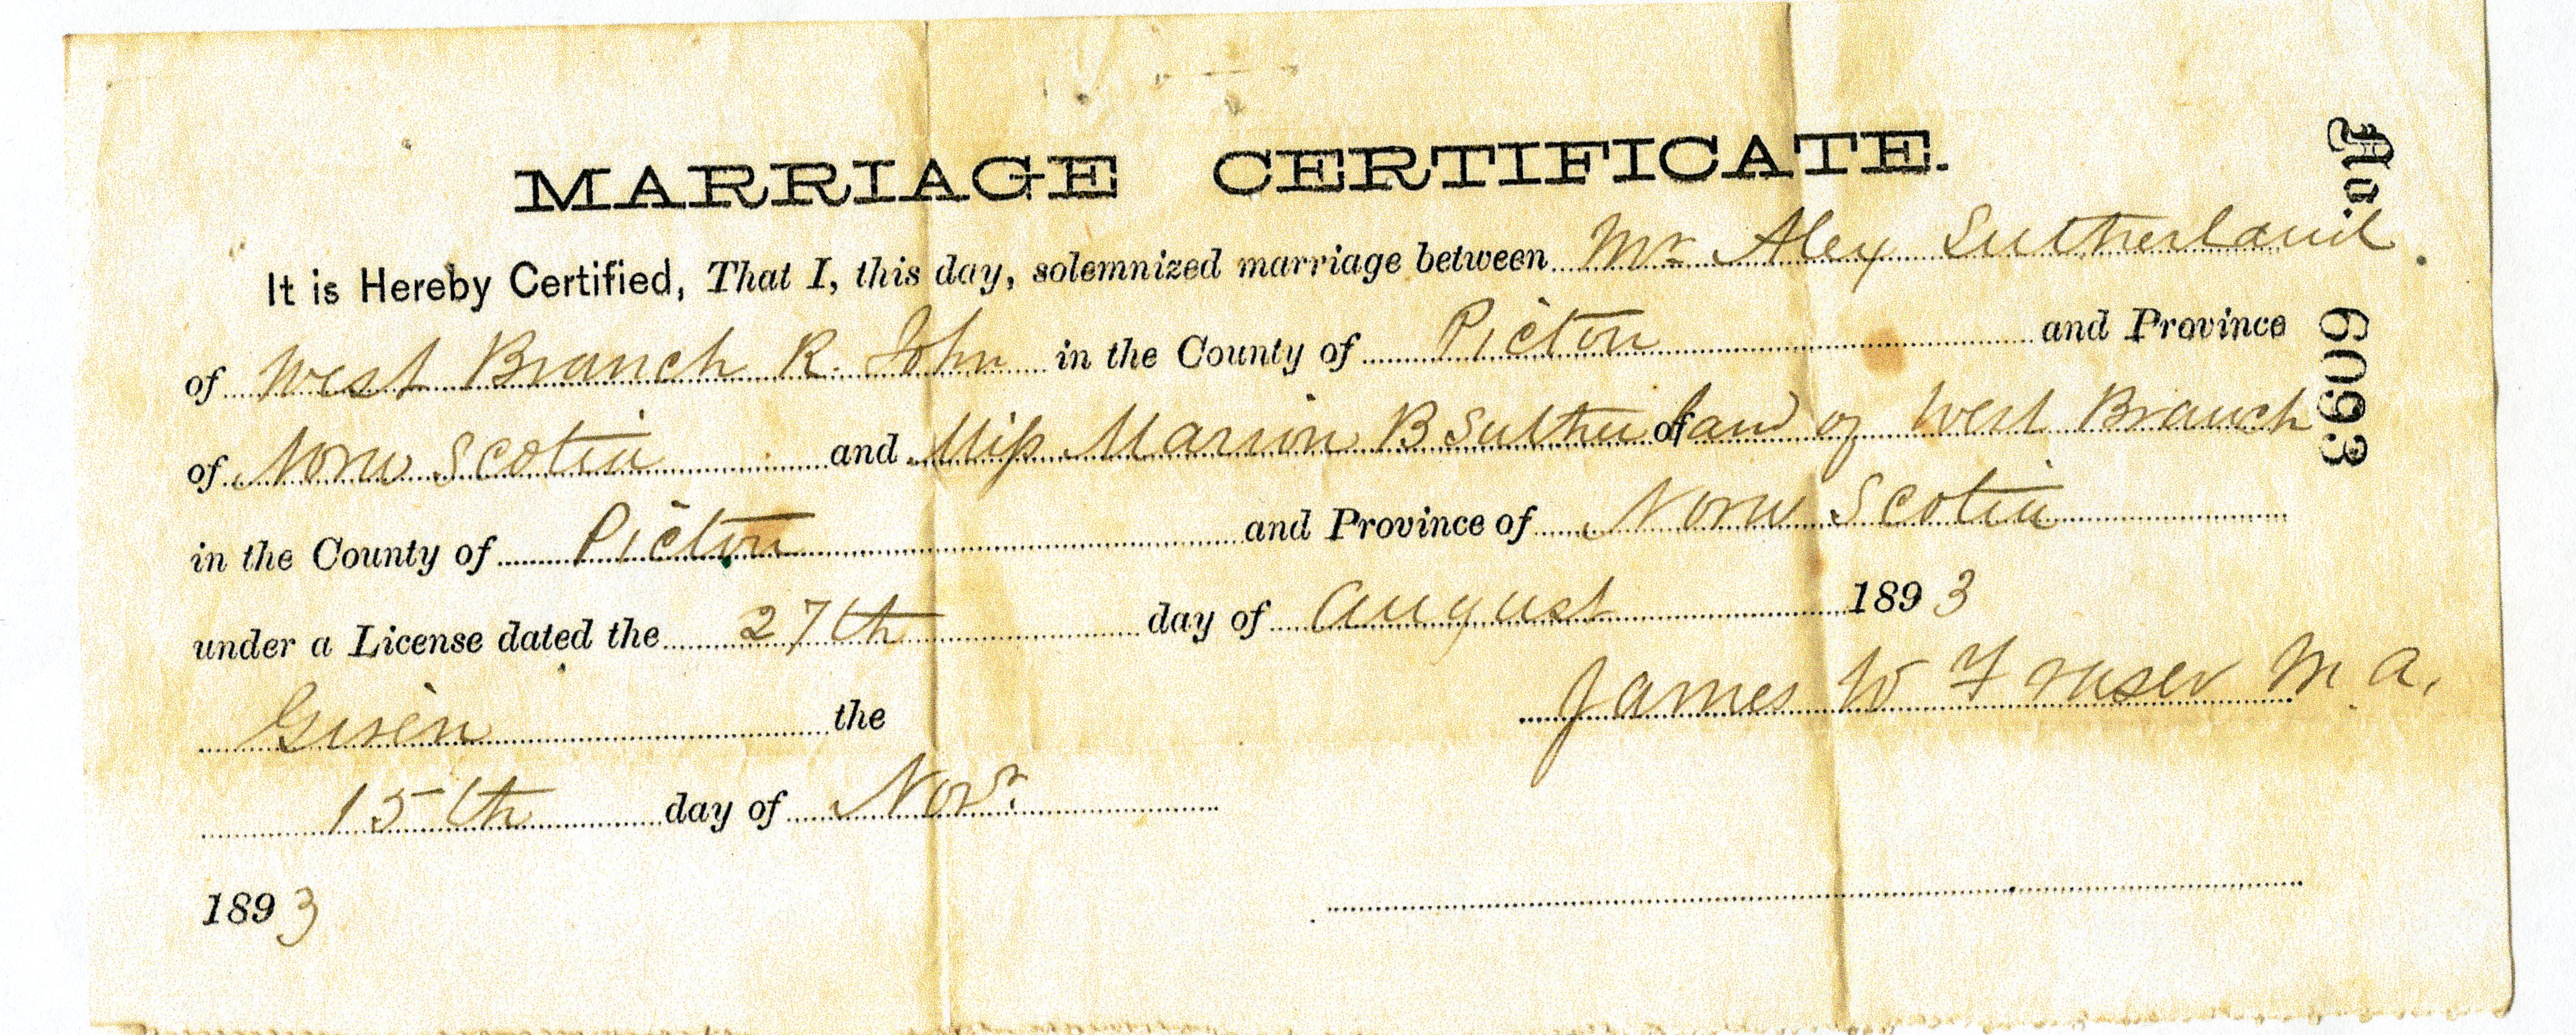 MARRIAGE CERTIFICATE.
It is Hereby Certified, That I, this day, solemnized marriage between Mr Alex Sutherland
of West Branch R. John in the County of Pictou and Province
of Nova Scotia and Miss Marion B Sutherland of of West Branch
in the County of Pictou and Province of Nova Scotia
under a License dated the 27th day of August 1893
James W Fraser M. A.
Given the
15th day of Novr.
1893
No. 6093